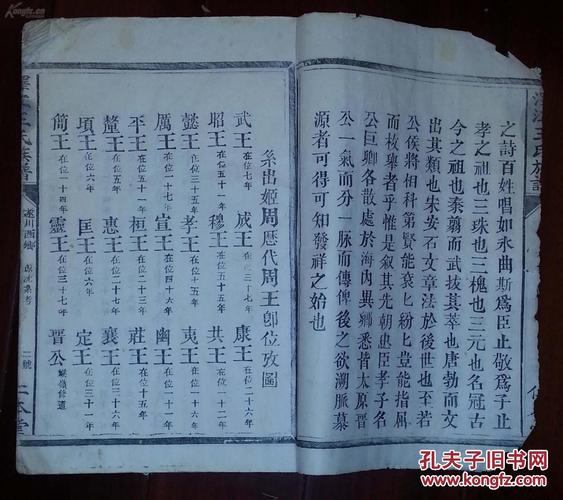 之詩百姓唱如永曲斯爲臣止敬爲子止
孝之祖也三珠也三槐也三元也名冠古
今之祖也泰翦而武拔其萃也唐勃而文
出其類也宋安石文章法於後世也至若
公侯將相科第賢能袞匕紛匕豈能指屈
而枚舉者乎惟是叙其先朝忠臣孝子名
公巨卿各散處於海内異鄉悉皆太原晋
公一氣而分一脉而傳俾後之欲溯脈慕
源者可得可知發祥之始也
系出姬周歷代周王卽位攷圖
武王在位七年 成王在位三十七年 康王在位二十六年
昭王在位五十一年 穆王在位五十五年 共王在位十二年
懿王在位二十五年 孝王在位十五年 夷王在位十六年
厲王在位三十七年 宣王在位四十六年 幽王在位十一年
平王在位五十一年 桓王在位二十三年 莊王在位十五年
釐王在位五年 惠王在位二十五年 襄王在位三十三年
頃王在位六年 匡王在位六年 定王在位二十一年
簡王在位十四年 靈王在位二十七年 晋公緱嶺修道
遂川西鄉
二號
孔夫子旧书网
www.kongfz.com
Kongfz.cn